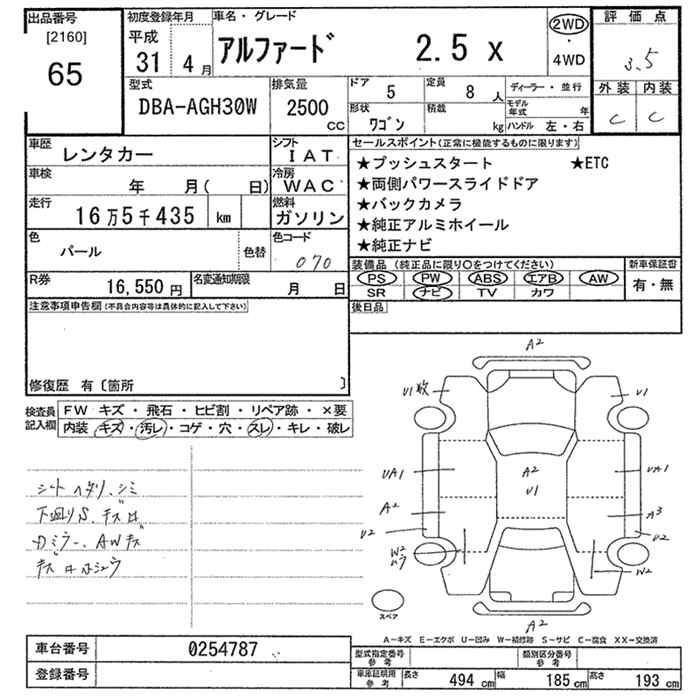 出品番号 初度登録年月 車名・グレード 2WD ・ 4WD 評価点
[2160] 65 平成 31 4月 アルファード 2.5 X 3.5
外装 内装
C C
型式 DBA-AGH30W 排気量 2500 cc
ドア 5 定員 8人 ディーラー・並行
形状 ワゴン 積載 kg モデル年式 年
ハンドル 左・右
車歴 レンタカー シフト IAT
車検 年 月( 日) 冷房 WAC
走行 16万5千435 km 燃料 ガソリン
色 パール 色替 色コード 070
R券 16,550円 名変通知期限 月 日
セールスポイント(正常に機能するものに限ります)
★プッシュスタート ★ETC
★両側パワースライドドア
★バックカメラ
★純正アルミホイール
★純正ナビ
装備品 (純正品に限り〇をつけてください) 新車保証書
PS PW ABS エアB AW 有・無
SR ナビ TV カワ
後日品
注意事項申告欄(不具合内容等は具体的に記入して下さい)
修復歴 有〔箇所 〕
検査員記入欄
FW キズ・飛石・ヒビ割・リペア跡・×要
内装 キズ・汚レ・コゲ・穴・スレ・キレ・破レ
シートヘタリ、シミ
下廻りS、キズ
ミラー、AWキズ
A2
U1
U1
UA1
A2
U1
UA1
A2
A3
U2
U2
W2
W2
A2
スペア
A-キズ E-エクボ U-凹み W-補修跡 S-サビ C-腐食 XX-交換済
車台番号 0254787
登録番号
型式指定番号 参考 類別区分番号 参考
車庫証明用 参考 長さ 494 cm 幅 185 cm 高さ 193 cm